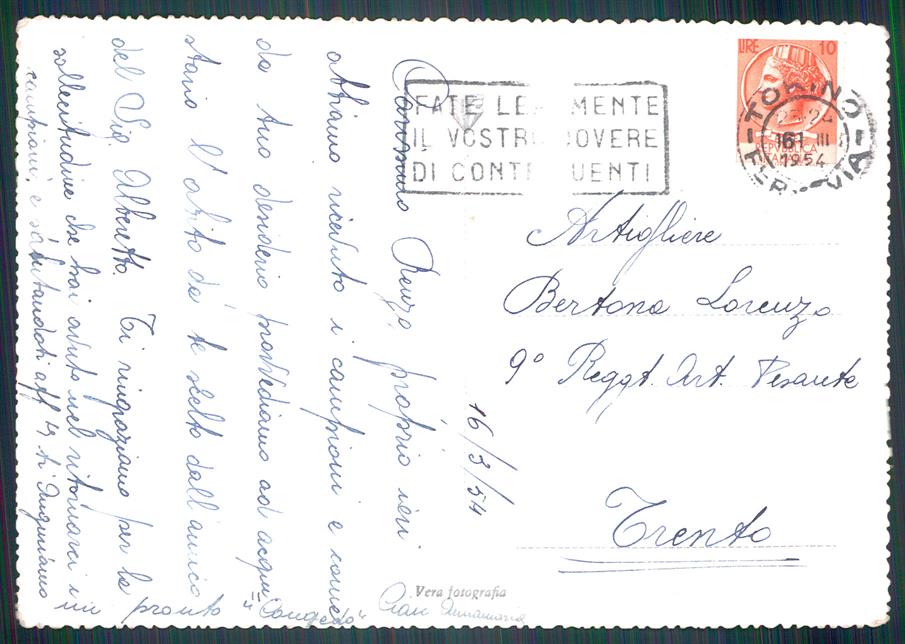 LIRE 10
REPVBBLICA
ITALIANA
TORINO
23-24
16 III
1954
FERROVIA
FATE LE MENTE
IL VOSTR DOVERE
DI CONT UENTI
Carissimo Renzo, proprio ieri
abbiamo ricevuto i campioni e come
da tuo desiderio provvediamo ad acqui
stare l'abito da te scelto dall'amico
del Sig. Alberto. Ti ringraziamo per la
sollecitudine che hai avuto nel ritornarci i
campioni, e salutandoti aff. ti auguriamo
un pronto "Congedo"
16/3/54
Artigliere
Bertona Lorenzo
9° Reggt. Art. Pesante
Trento
Vera fotografia